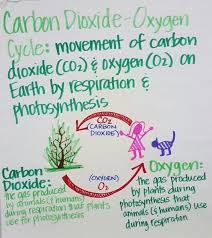 Carbon Dioxide-Oxygen
Cycle: movement of carbon
dioxide (CO2) & oxygen (O2) on
Earth by respiration &
photosynthesis
CO2
(CARBON
DIOXIDE)
(OXYGEN)
O2
Carbon
Dioxide:
the gas produced
by animals (& humans)
during respiration that plants
use for photosynthesis
Oxygen:
the gas produced
by plants during
photosynthesis that
animals (& humans) use
during respiration